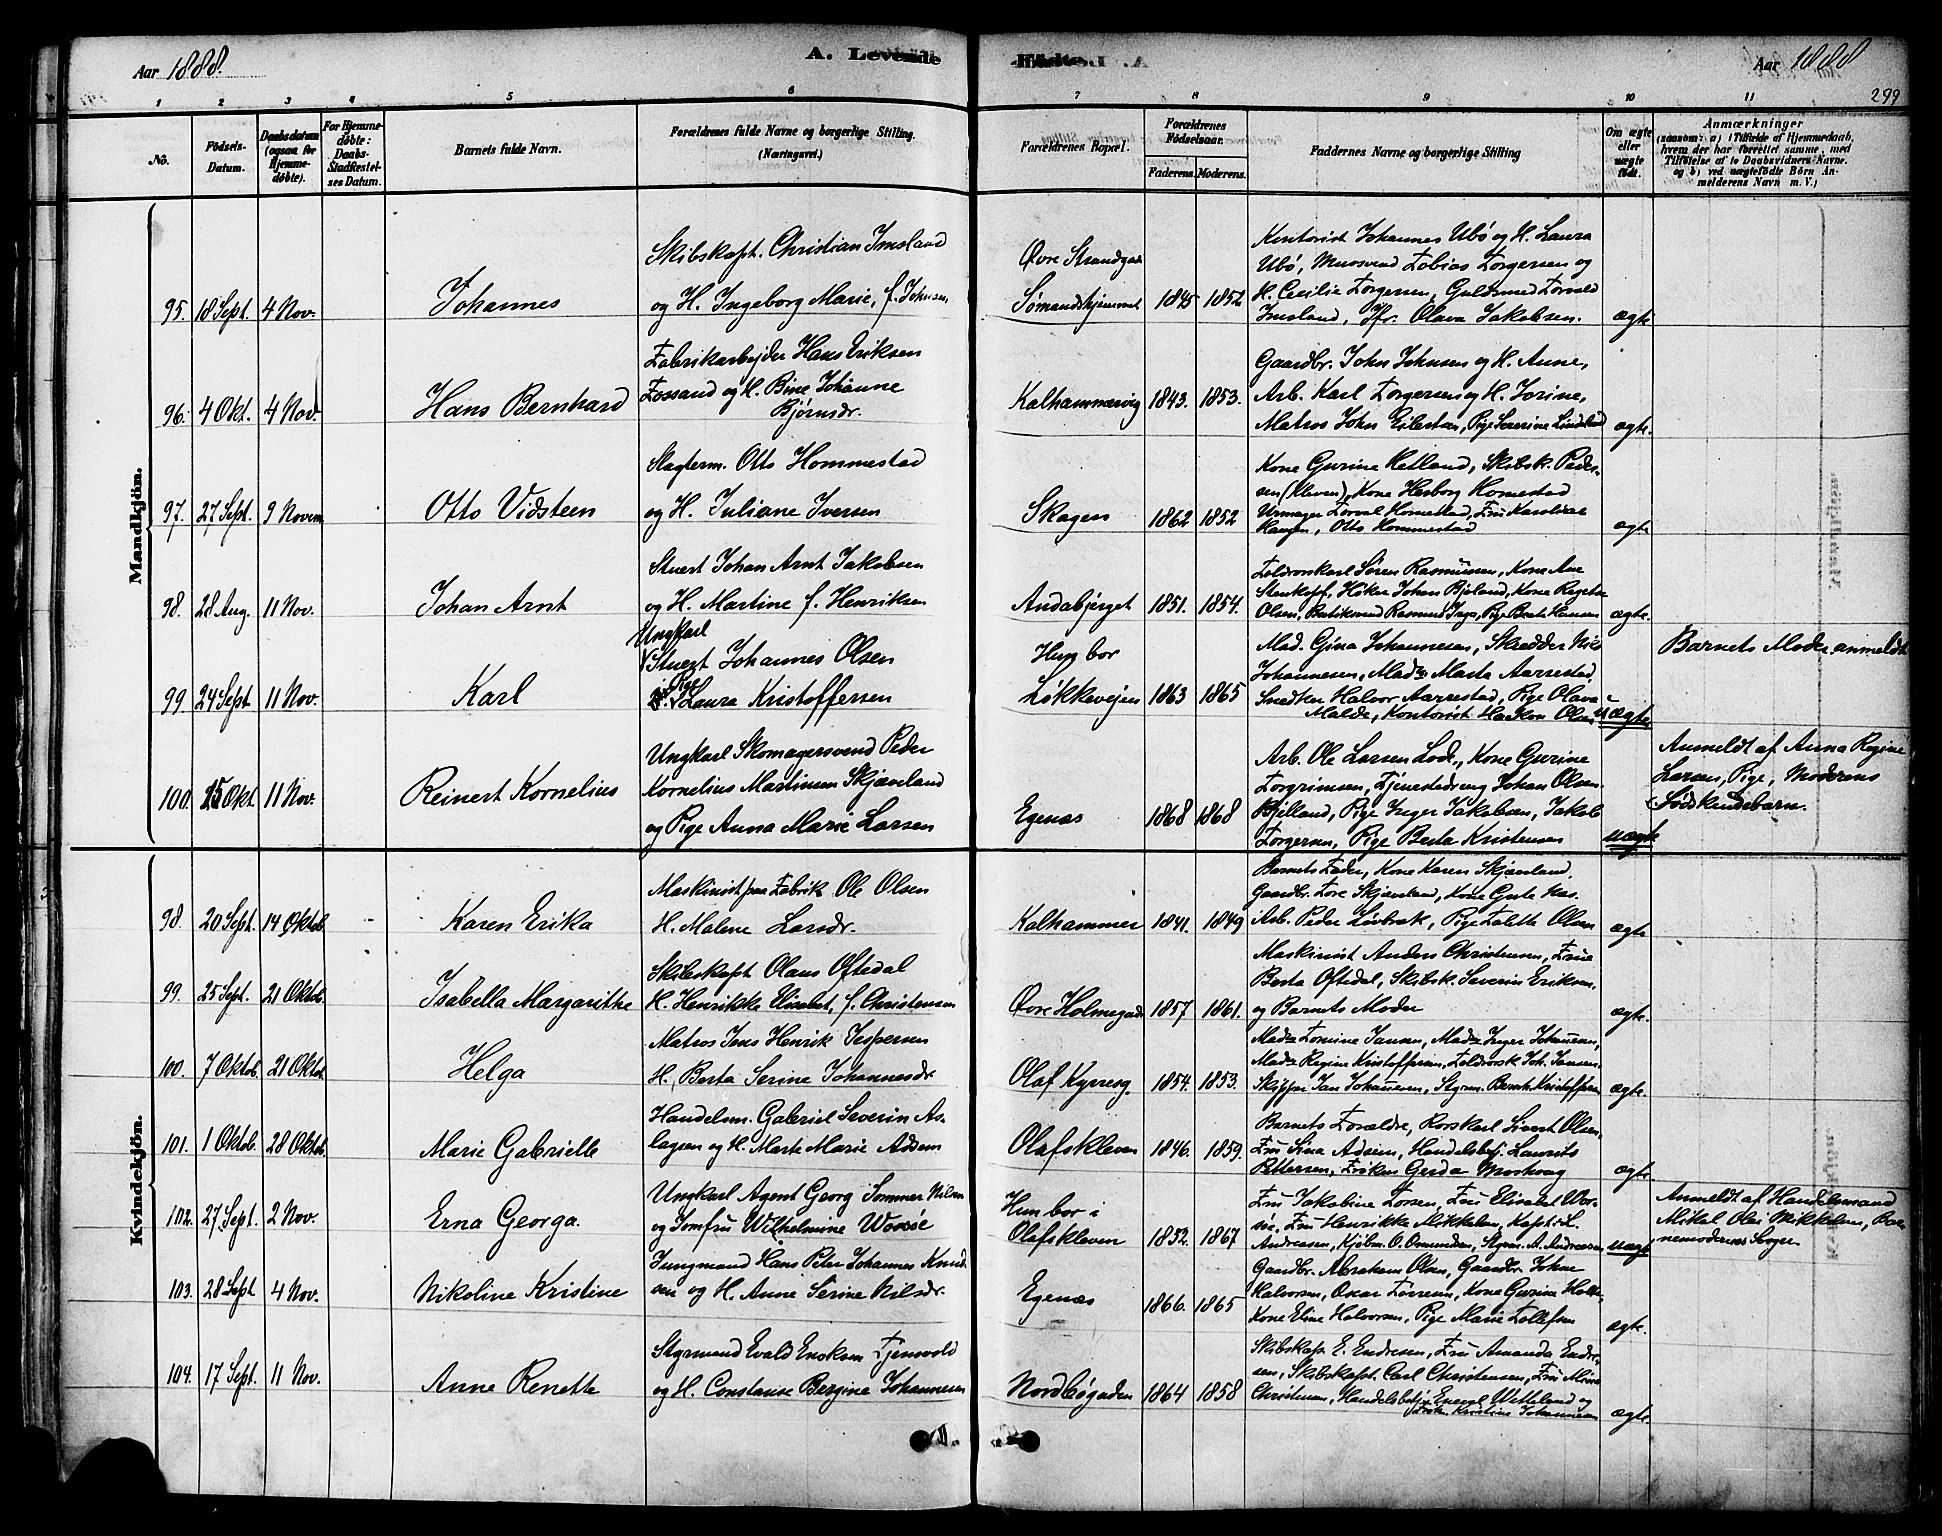 Aar 1888.
A. Levende
Fødte.
Aar 1888
299
1 2 3 4 5 6 7 8 9 10 11
No.
Fødsels-
Datum.
Daabsdatum
(ogsaa for
Hjemme-
døbte).
For Hjemme-
døbte:
Daabs-
Stadfæstel-
ses Datum.
Barnets fulde Navn.
Forældrenes fulde Navne og borgerlige Stilling.
(Næringsvei.)
Forældrenes Bopæl.
Forældrenes
Fødselsaar.
Faderens. Moderens.
Faddernes Navne og borgerlige Stilling
Om ægte
eller
uægte
født.
Anmærkninger
(saasom: a) i Tilfælde af Hjemmedaab,
hvem der har forrettet samme, med
Tilføielse af to Daabsvidners Navne.
og b) ved uægtefødte Børn An-
melderens Navn m. V.)
Mandkjön.
95. 18 Sept. 4 Nov.
Johannes
Skibskapt. Christian Imsland
og H. Ingeborg Marie, f. Johnsen
Øvre Strandgade
Sømandshjemmet
1845 1852
Kontorist Johannes Ubø og H. Laura
Ubø, Murosvend Tobias Torgersen og
H. Cecilie Torgersen, Guldsmed Torvald
Imsland, Jfr. Olava Jakobsen.
ægte
96. 4 Okt. 4 Nov.
Hans Bernhard
Fabrikarbejder Hans Eriksen
Fossand og H. Bine Johanne
Bjørnsdr.
Kalhammervig
1843. 1853.
Gaardbr. John Johnsen og H. Anne,
Arb. Karl Torgersen og H. Jorine,
Matros John Eilertsen, Pige Severine Lindeland
ægte.
97. 27 Sept. 9 Novem
Otto Vidsteen
Slagterm. Otto Hommestad
og H. Juliane Iversen
Skagen
1862 1852
Kone Gurine Hetland, Skibsk. Peder-
sen (Kleven), Kone Herborg Homestad
Urmager Torval Homestad, Fru Karoline
Hansen, Otto Hommestad
ægte
98. 28 Aug. 11 Nov.
Johan Arnt
Stuert Johan Arnt Jakobsen
og H. Martine f. Henriksen
Andabjerget
1851. 1854.
Toldroskarl Søren Rasmussen, Kone Ane
Stenkopf, Høker Johan Bjeland, Kone Regine
Olsen, Butiksmand Rasmus Inga, Pige Berte Hansen
ægte.
99. 24 Sept 11 Nov.
Karl
Ungkarl
Stuert Johannes Olsen
Pige
Laura Kristoffersen
Hun bor
Løkkeveien
1863 1865
Mad. Gina Johannesen, Skrædder Nils
Johannesen, Mad. Marta Aarrestad,
Snedker Halvor Aarrestad, Pige Olava
Malde, Kontorist Haakon Olsen
uægte
Barnets Moder anmeldt
100. 15 Okt 11 Nov.
Reinert Kornelius
Ungkarl Skomagersvend Peder
Kornelius Martinsen Skjæveland
og Pige Anna Marie Larsen
Egenæs
1868 1868
Arb. Ole Larsen Lode, Kone Gurine
Torgrimsen, Tjenestedreng Johan Olsen
Bjelland, Pige Inger Jakobsen, Jakob
Torgersen, Pige Berta Kristensen
uægte
Anmeldt af Anna Regine
Larsen, Pige, Moderens
Sødskendebarn.
Kvindekjön.
98. 20 Sept. 14 Oktob
Karen Erika
Maskinist paa Fabrik Ole Olsen
H. Malene Larsdr.
Kalhammer
1841. 1849
Barnets Fader, Kone Karen Skjæveland,
Gaardbr. Tore Skjæveland, Kone Gurte Aas.
Arb. Peder Løvbræk, Pige Lalitte Olsen
ægte
99. 25 Sept. 21 Oktob.
Isabella Margarithe
Skibskapt. Olaus Oftedal
H. Henrikke Elisabet, f. Christensen
Øvre Holmegade
1857 1861.
Maskinist Anders Christensen, Frue
Berta Oftedal, Skibsk. Severin Eriksen,
og Barnets Moder
ægte.
100. 7 Oktob. 21 Oktob
Helga
Matros Jens Henrik Jespersen
H. Berta Serine Johannesdr.
Olaf Kyrresg.
1854. 1853.
Mad. Tomine Jansen, Mad. Inger Johannesen,
Mad. Regine Kristoffersen, Toldrorsk Joh. Jansen,
Skipper Jan Johannesen, Styrm. Bernt Kristoffersen
ægte.
101. 1 Oktob. 28 Oktob.
Marie Gabrielle
Handelsm. Gabriel Severin As-
lagsen og H. Marte Marie Adsen
Olafskleven
1846. 1859.
Barnets Forældre, Rorskarl Sivert Olsen,
Fru Sina Adsen, Handelsbetj. Laurits
Pettersen, Frøken Gerda Moskoug
ægte.
102. 27 Sept. 2 Nov.
Erna Georga.
Ungkarl Agent Georg Sommer Nilsen
og Jomfru Wilhelmine Worsøe
Hun bor i
Olafskleven
1852. 1867
Fru Jakobine Larsen, Fru Elisabet Wor-
søe, Fru Henrikke Mikkelsen, Kapt. L.
Andreasen, Kjøbm. O. Osmundsen, Styrm. A. Andreasen
uægte
Anmeldt af Handelsmand
Mikal Olai Mikkelsen, Bar-
nemoderens Svoger
103. 28 Sept 4 Nov.
Nikoline Kristine
Jungmand Hans Peter Johannes Knud-
sen og H. Anne Serine Nilsdr.
Egenæs
1866. 1865
Gaardbr. Abraham Olsen, Gaardbr. Johan
Halvorsen, Oscar Tørresen, Kone Gurine
Kone Eline Halvorsen, Pige Marie Tollefsen
ægte.
104. 17 Sept. 11 Nov.
Anne Renette
Styrmand Evald Enoksen Tjensvold
og H. Constanse Bergine Johannesen
Nordbøgaden
1864 1858
Skibskapt. E. Endresen, Fru Amanda Endre-
sen, Skibskapt. Carl Christensen, Fru Mina
Christensen, Handelsbetj. Wetteland og
Frøk. Kristine Johannesen
ægte.